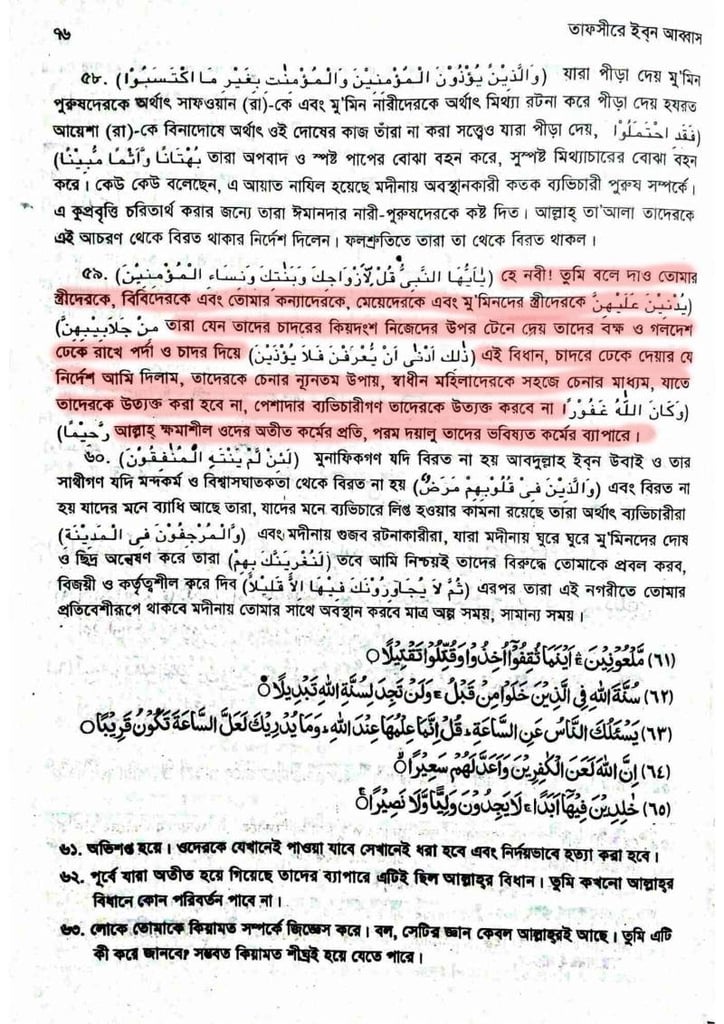 ৭৬ তাফসীরে ইবন আব্বাস
৫৮. (وَالَّذِيْنَ يُؤْذُوْنَ الْمُؤْمِنِيْنَ وَالْمُؤْمِنٰتِ بِغَيْرِ مَا اكْتَسَبُوْا) যারা পীড়া দেয় মু'মিন
পুরুষদেরকে অর্থাৎ সাফওয়ান (রা)-কে এবং মু'মিন নারীদেরকে অর্থাৎ মিথ্যা রটনা করে পীড়া দেয় হযরত
আয়েশা (রা)-কে বিনাদোষে অর্থাৎ ওই দোষের কাজ তাঁরা না করা সত্ত্বেও যারা পীড়া দেয়, (فَقَدِ احْتَمَلُوْا
بُهْتَانًا وَّاِثْمًا مُّبِيْنًا) তারা অপবাদ ও স্পষ্ট পাপের বোঝা বহন করে, সুস্পষ্ট মিথ্যাচারের বোঝা বহন
করে। কেউ কেউ বলেছেন, এ আয়াত নাযিল হয়েছে মদীনায় অবস্থানকারী কতক ব্যভিচারী পুরুষ সম্পর্কে।
এ কুপ্রবৃত্তি চরিতার্থ করার জন্যে তারা ঈমানদার নারী-পুরুষদেরকে কষ্ট দিত। আল্লাহ্ তা'আলা তাদেরকে
এই আচরণ থেকে বিরত থাকার নির্দেশ দিলেন। ফলশ্রুতিতে তারা তা থেকে বিরত থাকল।
৫৯. (يٰاَيُّهَا النَّبِىُّ قُلْ لِاَزْوَاجِكَ وَبَنٰتِكَ وَنِسَاءِ الْمُؤْمِنِيْنَ) হে নবী! তুমি বলে দাও তোমার
স্ত্রীদেরকে, বিবিদেরকে এবং তোমার কন্যাদেরকে, মেয়েদেরকে এবং মু'মিনদের স্ত্রীদেরকে (يُدْنِيْنَ عَلَيْهِنَّ
مِنْ جَلَابِيْبِهِنَّ) তারা যেন তাদের চাদরের কিয়দংশ নিজেদের উপর টেনে দেয় তাদের বক্ষ ও গলদেশ
ঢেকে রাখে পর্দা ও চাদর দিয়ে (ذٰلِكَ اَدْنٰى اَنْ يُّعْرَفْنَ فَلَا يُؤْذَيْنَ) এই বিধান, চাদরে ঢেকে দেয়ার যে
নির্দেশ আমি দিলাম, তাদেরকে চেনার ন্যূনতম উপায়, স্বাধীন মহিলাদেরকে সহজে চেনার মাধ্যম, যাতে
তাদেরকে উত্যক্ত করা হবে না, পেশাদার ব্যভিচারীগণ তাদেরকে উত্যক্ত করবে না (وَكَانَ اللّٰهُ غَفُوْرًا
رَّحِيْمًا) আল্লাহ্ ক্ষমাশীল ওদের অতীত কর্মের প্রতি, পরম দয়ালু তাদের ভবিষ্যত কর্মের ব্যাপারে।
৬০. (لَئِنْ لَّمْ يَنْتَهِ الْمُنٰفِقُوْنَ) মুনাফিকগণ যদি বিরত না হয় আবদুল্লাহ ইবন উবাই ও তার
সাথীগণ যদি মন্দকর্ম ও বিশ্বাসঘাতকতা থেকে বিরত না হয় (وَالَّذِيْنَ فِىْ قُلُوْبِهِمْ مَّرَضٌ) এবং বিরত না
হয় যাদের মনে ব্যাধি আছে তারা, যাদের মনে ব্যভিচারে লিপ্ত হওয়ার কামনা রয়েছে তারা অর্থাৎ ব্যভিচারীরা
(وَّالْمُرْجِفُوْنَ فِى الْمَدِيْنَةِ) এবং মদীনায় গুজব রটনাকারীরা, যারা মদীনায় ঘুরে ঘুরে মু'মিনদের দোষ
ও ছিদ্র অন্বেষণ করে তারা (لَنُغْرِيَنَّكَ بِهِمْ) তবে আমি নিশ্চয়ই তাদের বিরুদ্ধে তোমাকে প্রবল করব,
বিজয়ী ও কর্তৃত্বশীল করে দিব (ثُمَّ لَا يُجَاوِرُوْنَكَ فِيْهَا اِلَّا قَلِيْلًا) এরপর তারা এই নগরীতে তোমার
প্রতিবেশীরূপে থাকবে মদীনায় তোমার সাথে অবস্থান করবে মাত্র অল্প সময়, সামান্য সময়।
(٦١) مَّلْعُوْنِيْنَ ۛ اَيْنَمَا ثُقِفُوْٓا اُخِذُوْا وَقُتِّلُوْا تَقْتِيْلًا ○
(٦٢) سُنَّةَ اللّٰهِ فِى الَّذِيْنَ خَلَوْا مِنْ قَبْلُ ۚ وَلَنْ تَجِدَ لِسُنَّةِ اللّٰهِ تَبْدِيْلًا ○
(٦٣) يَسْـَٔلُكَ النَّاسُ عَنِ السَّاعَةِ ؕ قُلْ اِنَّمَا عِلْمُهَا عِنْدَ اللّٰهِ ؕ وَمَا يُدْرِيْكَ لَعَلَّ السَّاعَةَ تَكُوْنُ قَرِيْبًا ○
(٦٤) اِنَّ اللّٰهَ لَعَنَ الْكٰفِرِيْنَ وَاَعَدَّ لَهُمْ سَعِيْرًا ○
(٦٥) خٰلِدِيْنَ فِيْهَآ اَبَدًا ۚ لَا يَجِدُوْنَ وَلِيًّا وَّلَا نَصِيْرًا ○
৬১. অভিশপ্ত হয়ে। ওদেরকে যেখানেই পাওয়া যাবে সেখানেই ধরা হবে এবং নির্দয়ভাবে হত্যা করা হবে।
৬২. পূর্বে যারা অতীত হয়ে গিয়েছে তাদের ব্যাপারে এটিই ছিল আল্লাহ্‌র বিধান। তুমি কখনো আল্লাহ্‌র
বিধানে কোন পরিবর্তন পাবে না।
৬৩. লোকে তোমাকে কিয়ামত সম্পর্কে জিজ্ঞেস করে। বল, সেটির জ্ঞান কেবল আল্লাহ্‌রই আছে। তুমি এটি
কী করে জানবে? সম্ভবত কিয়ামত শীঘ্রই হয়ে যেতে পারে।